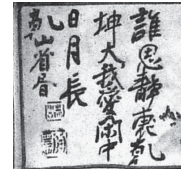 誰思靜裏乾
坤大我愛閑中
日月長
乾山省書